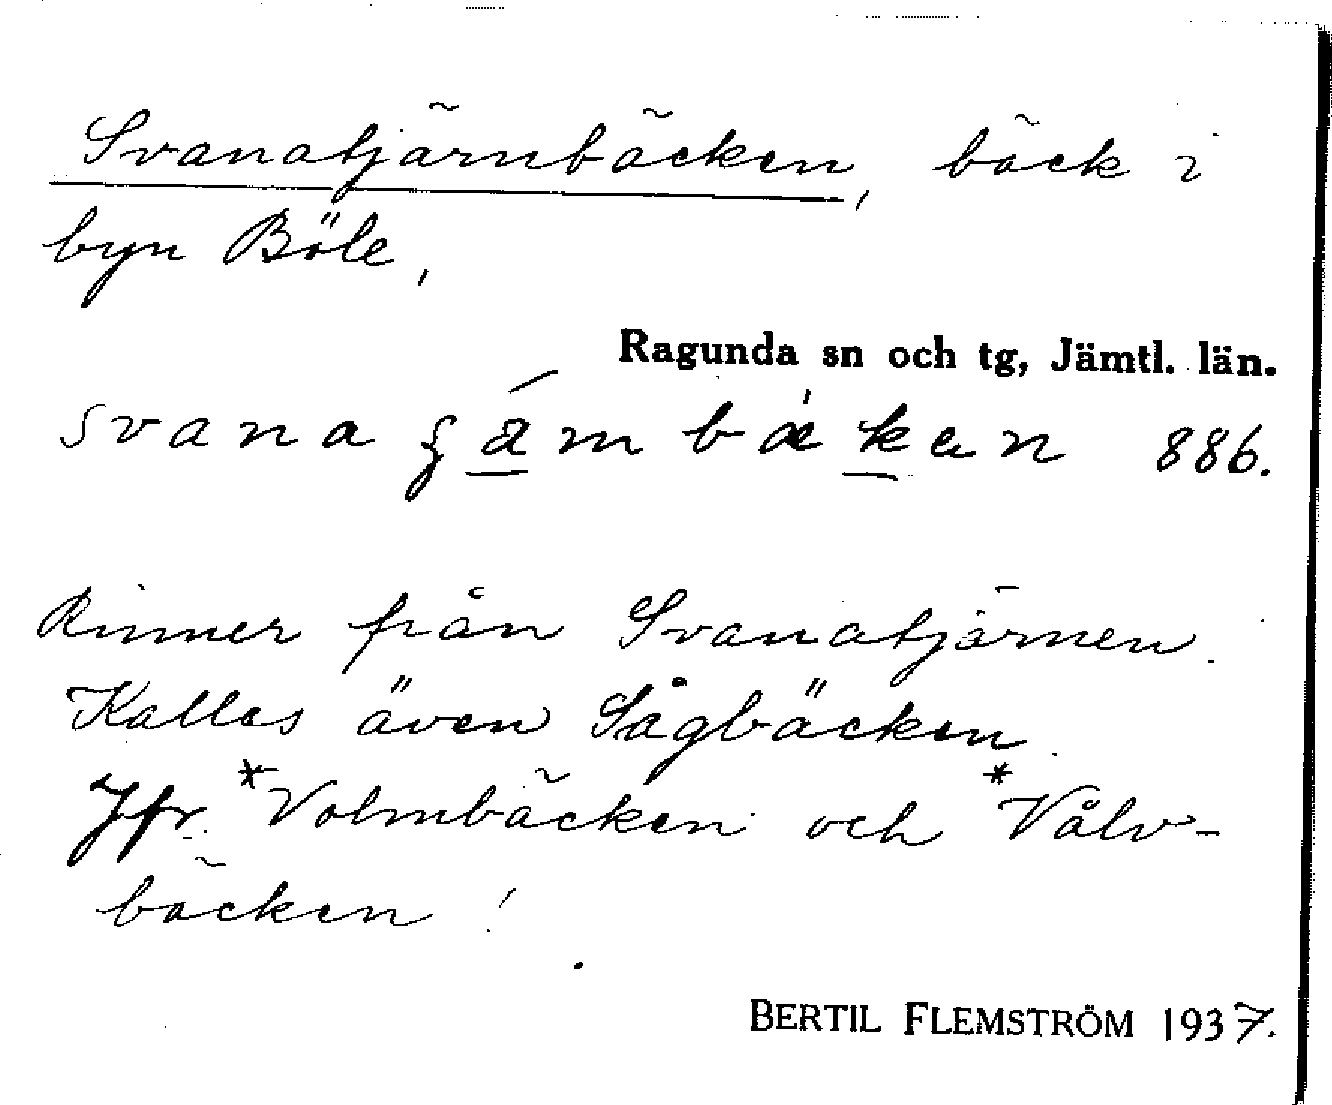 Svanatjärnbäcken, bäck i
byn Böle,
Ragunda sn och tg, Jämtl. län.
886.
Rinner från Svanatjärnen.
Kallas även Sågbäcken.
Jfr. *Volmbäcken och *Vålv-
bäcken!
BERTIL FLEMSTRÖM 1937.